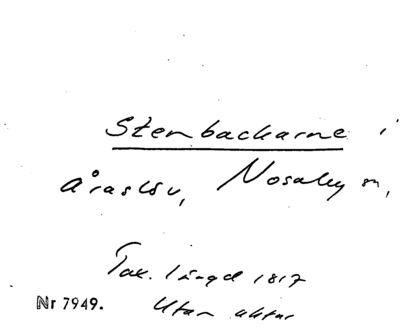 Stenbackarne i
Åraslöv, Nosaby sn,
Tax. längd 1817
Nr 7949. Utan aktnr